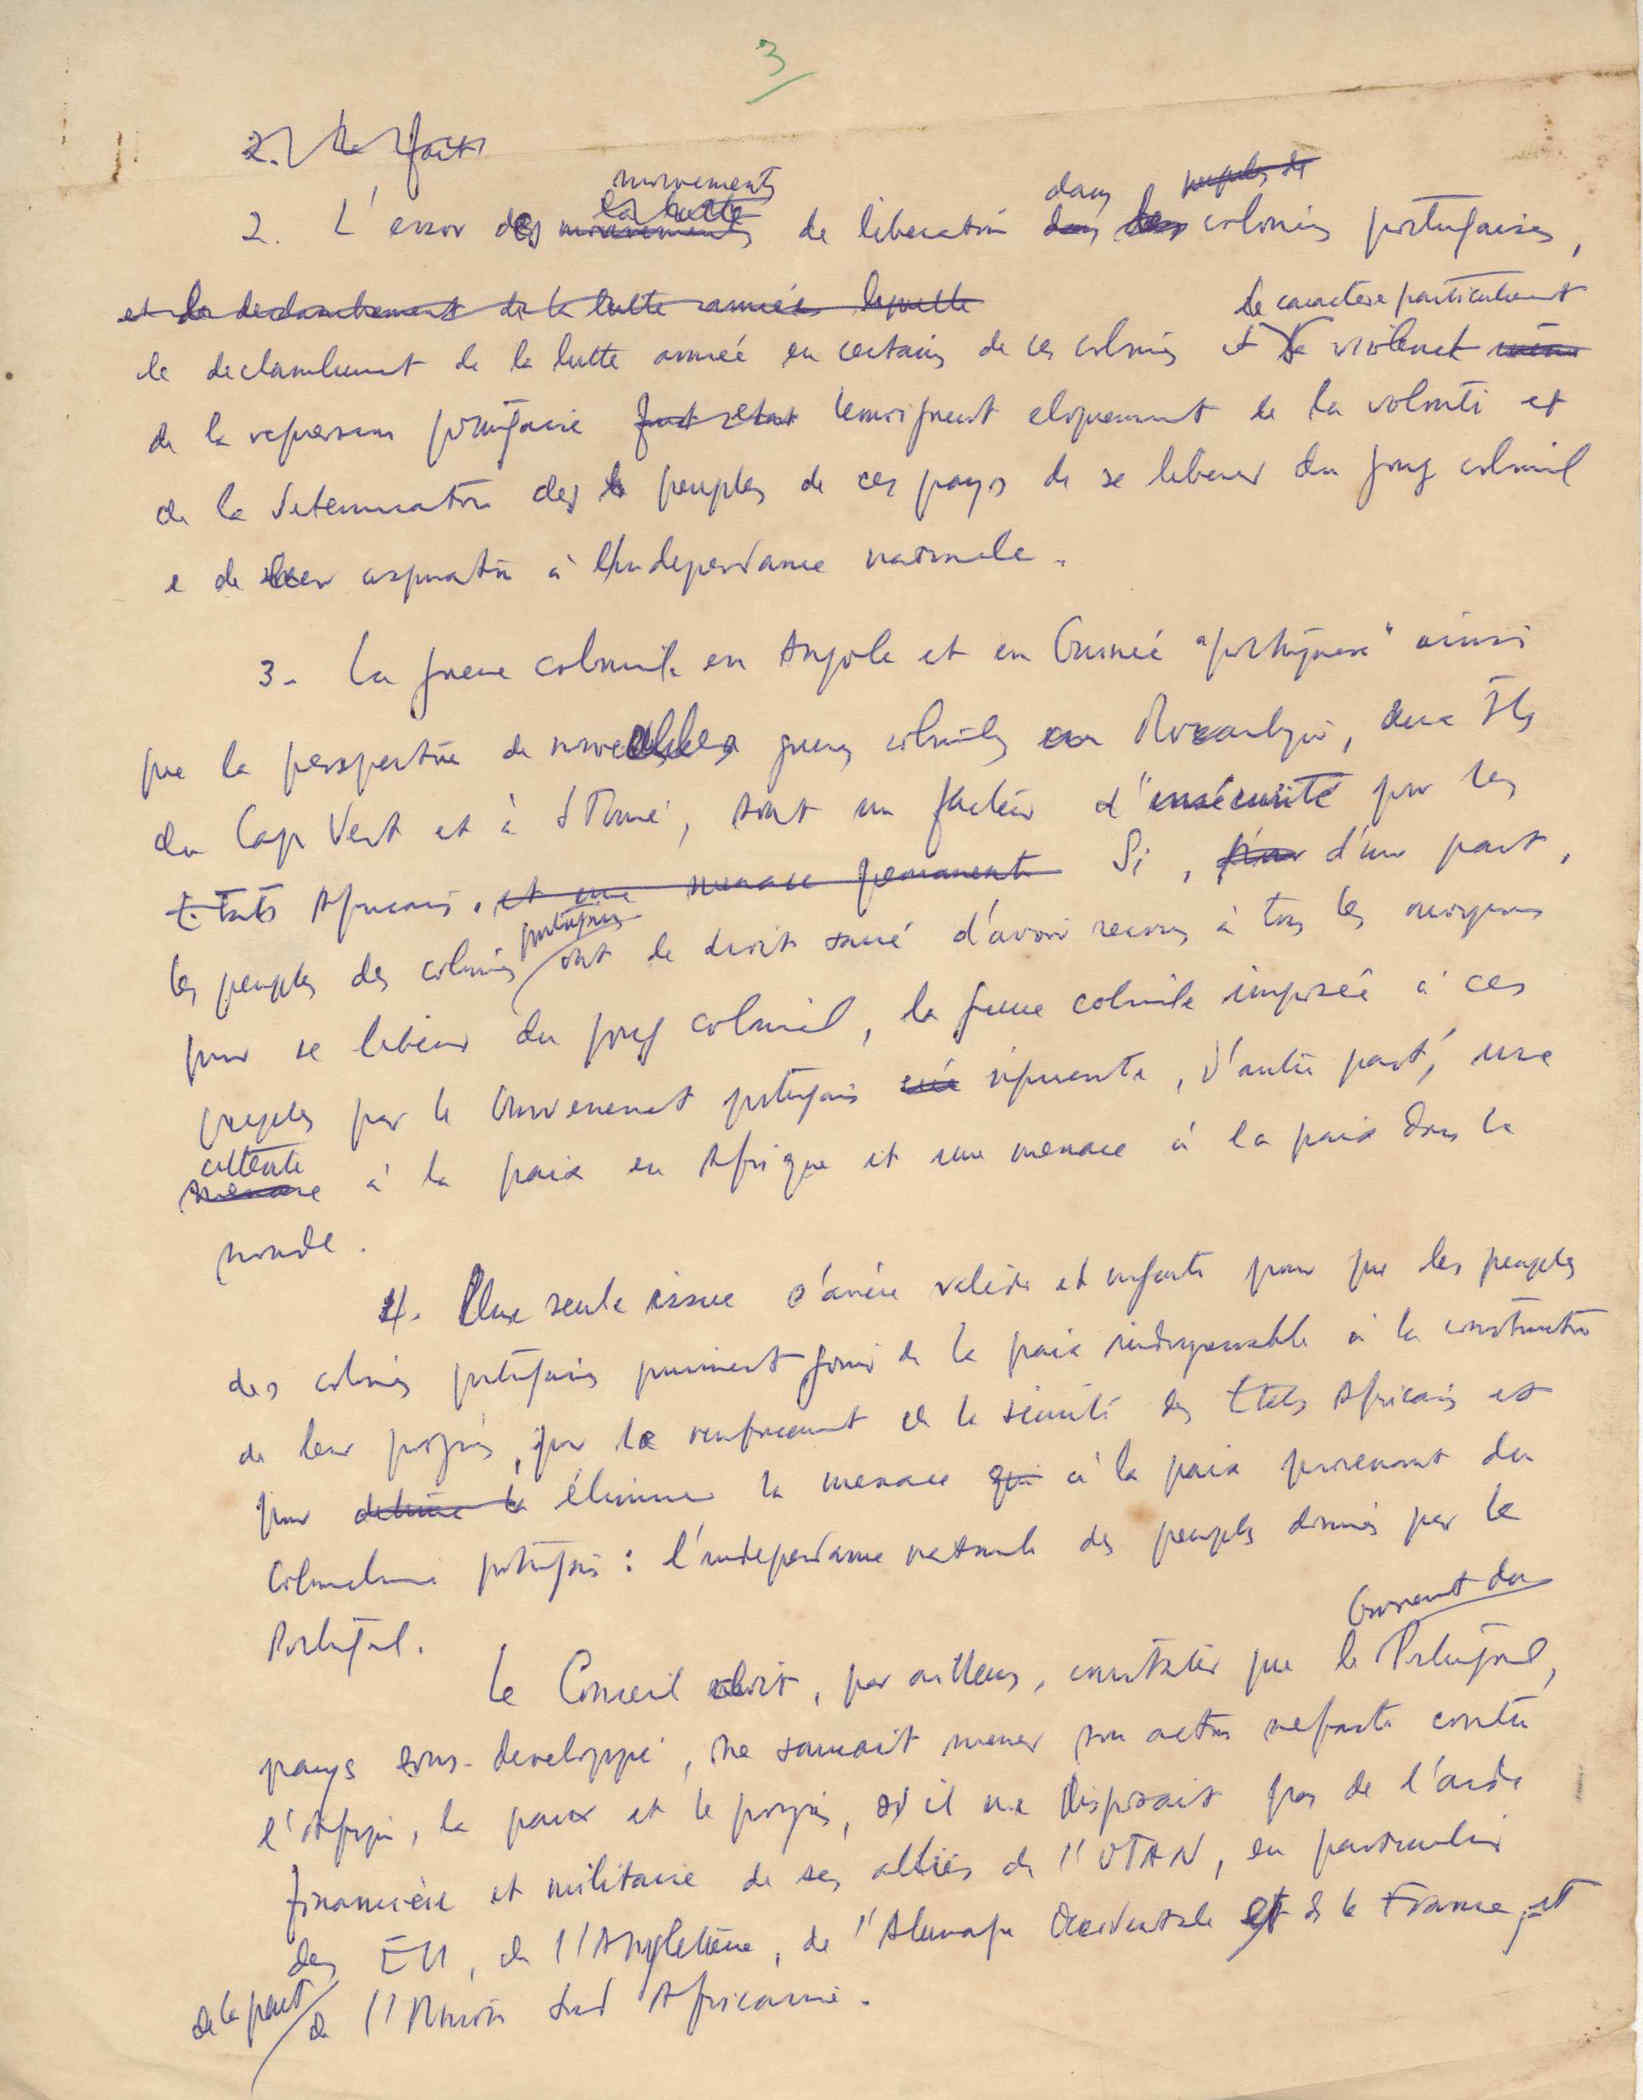 3
2. Le fait
mouvements
la lutte
dans peuples de
2. L'essor des mouvements de liberation dans les colonies portugaises,
et le declanchement de la lutte armée laquelle
le caractère particulierement
le declanchement de la lutte armée en certains de ces colonies et violent même
de la repression portugaise temoignent eloquemment de la volonté et
de la determination des peuples de ces pays de se liberer du joug colonial
e de leur aspiration à l'independance nationale.
3. La guerre coloniale en Angola et en Guinée "portugaise" ainsi
que la perspective de nouvelles guerres coloniales au Mozambique, aux Iles
du Cap Vert et à S Tomé, sont un facteur d'insécurité pour les
Etats Africains. et une menace permanente Si, d'une part,
portugaises
les peuples des colonies ont le droit sacré d'avoir recours à tous les moyens
pour se liberer du joug colonial, la guerre coloniale imposée à ces
peuples par le Gouvernement portugais represente, d'autre part, une
attente
menace à la paix en Afrique et une menace à la paix dans le
monde.
4. Une seule issue s'avère valide et urgente pour que les peuples
des colonies portugaises puissent jouir de la paix indispensable à la construction
de leur progrès, pour le renforcement de la sécurité des Etats Africains et
pour éliminer la menace qui à la paix provenant du
Colonialisme portugais : l'independance nationale des peuples dominés par le
Portugal.
Gouvernement du
Le Conseil doit, par ailleurs, constater que le Portugal,
pays sous-developpé, ne saurait mener son action nefaste contre
l'Afrique, la paix et le progrès, si il ne disposait pas de l'aide
financière et militaire de ses alliés de l'OTAN, en particulier
des EU, de l'Angleterre, de l'Alemagne Occidentale et de la France, et
de la part
de l'Union Sud Africaine.